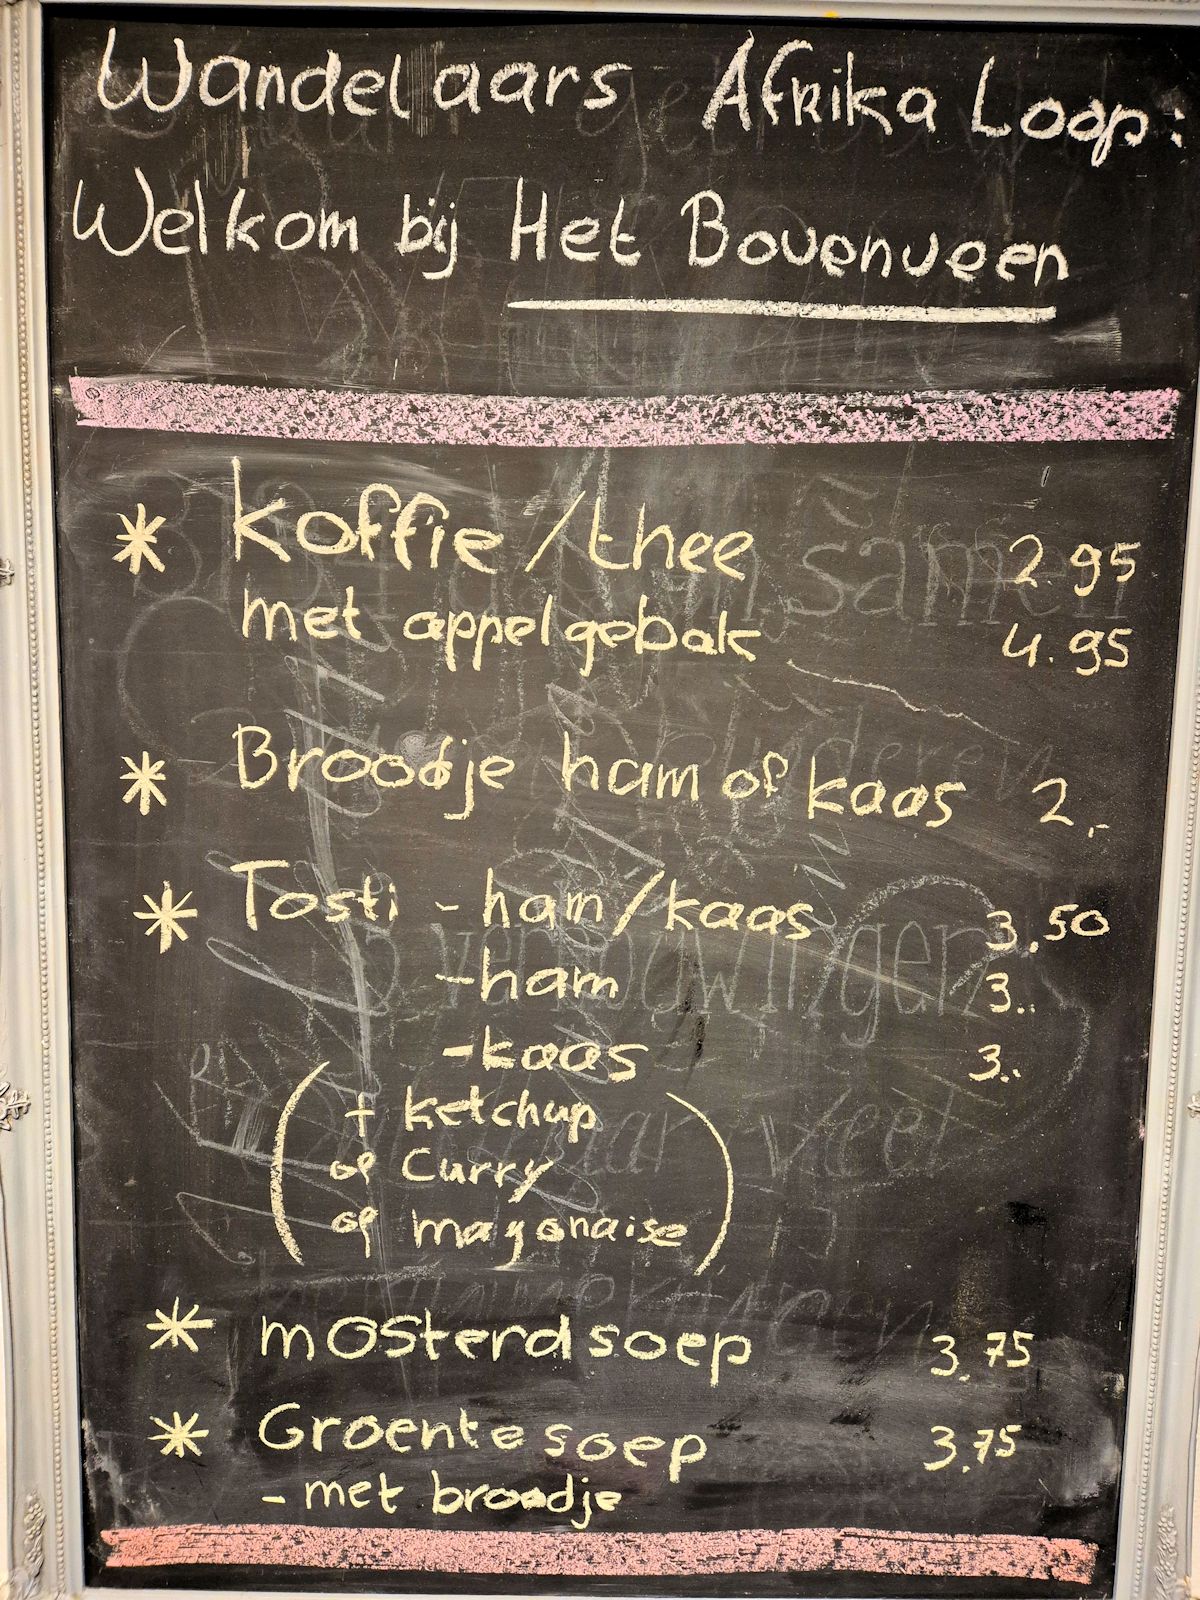 Wandelaars Afrika Loop:
Welkom bij Het Bovenveen
* Koffie/thee 2.95
met appelgebak 4.95
* Broodje ham of kaas 2,-
* Tosti - ham/kaas 3.50
- ham 3..
- kaas 3..
(+ ketchup
of Curry
of mayonaise)
* mosterdsoep 3.75
* Groentesoep 3.75
- met broodje